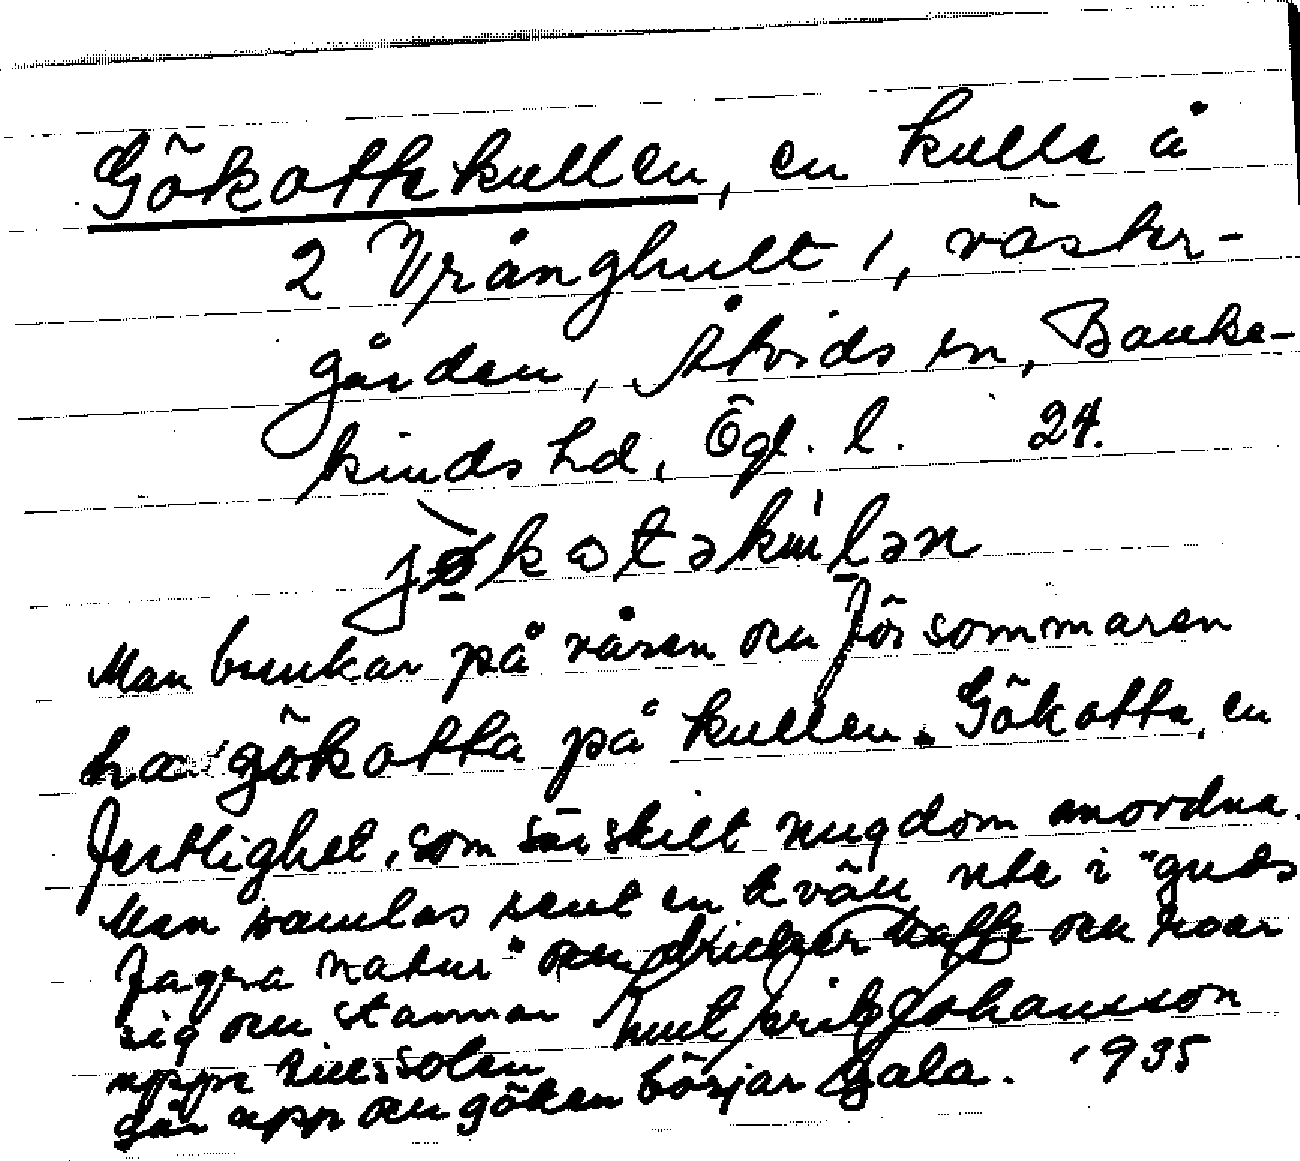 Gökottekullen, en kulle å
2 Vrånghult 1, väster-
gården, Åtvids sn, Banke-
kinds hd, Ögl. l. 24.
Man brukar på våren och försommaren
ha gökotta på kullen. Gökotta, en
festlighet, som särskilt ungdom anordna.
Man samlas sent en kväll ute i "guds
fagra natur" och dricker kaffe och roar
sig och stannar
uppe tills solen
går upp och göken börjar gala.
Knut Erik Johansson
1935